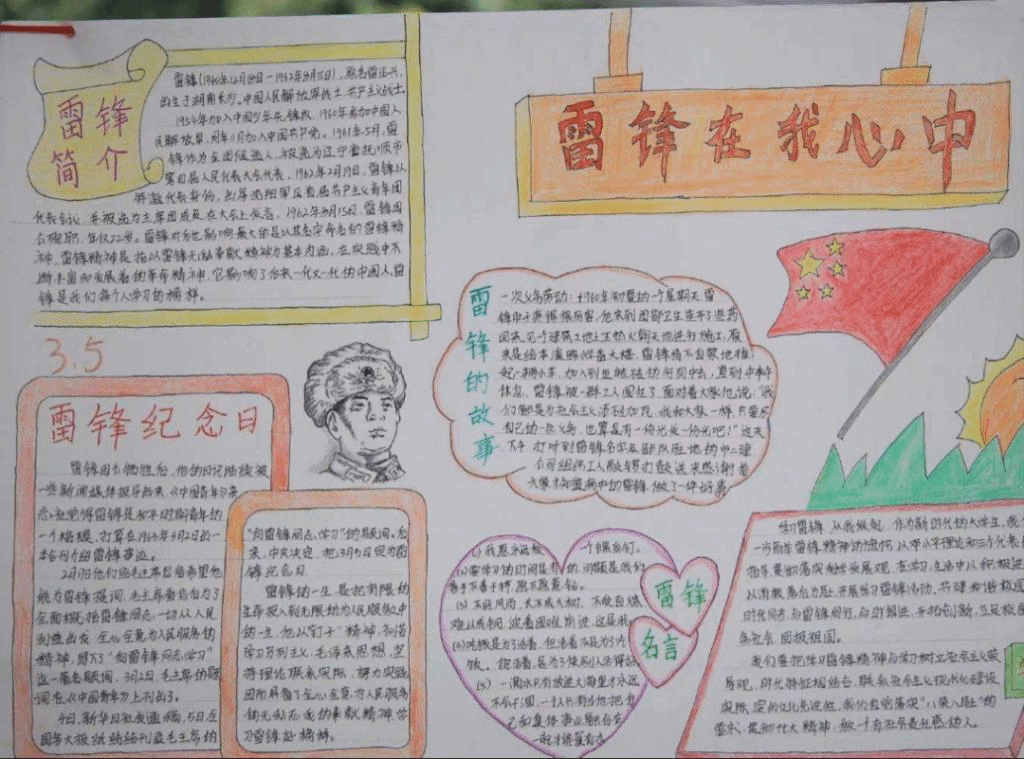 雷锋在我心中
雷锋
简介
雷锋(1940年12月18日-1962年8月15日),原名雷正兴,
出生于湖南长沙。中国人民解放军战士,共产主义战士。
1954年加入中国少年先锋队,1960年参加中国人
民解放军,同年11月加入中国共产党。1961年5月,雷
锋作为全团候选人,被选为辽宁省抚顺市
第四届人民代表大会代表。1962年2月19日,雷锋以
特邀代表身份,出席沈阳军区首届共产主义青年团
代表会议,并被选为主席团成员在大会上发言。1962年8月15日,雷锋因
公殉职,年仅22岁。雷锋对后世影响最大的是以其名字命名的雷锋精
神,雷锋精神是指以雷锋无私奉献精神为基本内涵,在实践中不
断丰富和发展着的革命精神,它影响了后来一代又一代的中国人,雷
锋是我们每个人学习的榜样。
3.5
雷锋纪念日
雷锋因公牺牲后,他的日记陆续被
一些新闻媒体报导出来,《中国青年》杂
志社觉得雷锋是和平时期青年的
一个楷模,打算在1963年3月2日的一
本合刊介绍雷锋事迹。
2月17日他们给毛主席写信希望他
能为雷锋提词,毛主席看信后为了
全面概括雷锋同志一切从人民
利益出发 全心全意为人民服务的
精神,题下了“向雷锋同志学习”
这一著名题词,3月2日,毛主席的题
词在《中国青年》上刊出了。
今日,新华社发通稿,5日全
国各大报纸纷纷刊登毛主席的
“向雷锋同志学习”的题词。后
来,中央决定,把3月5日定为雷
锋纪念日
雷锋的一生是把有限的
生命投入到无限的为人民服务之中
的一生,他以“钉子”精神,刻苦
学习马列主义、毛泽东思想,坚
持理论联系实际,努力实践
因而具备了全心全意为人民服务
的无私忘我的奉献精神,学
习雷锋好榜样。
雷锋的故事
一次义务劳动:1960年初夏的一个星期天,雷
锋肚子疼得很厉害,他来到团部卫生连开了些药
回来,见一个建筑工地上正热火朝天地进行施工,原
来是给本溪路小学盖大楼,雷锋情不自禁地推
起一辆小车,加入到运砖的行列中去,直到中午
休息,雷锋被一群工人围住了,面对着大家他说:“我
们都是为社会主义添砖加瓦,我和大家一样,只要尽
自己的一点义务,也算是有一份光发一份光吧!”这天
下午,打听到雷锋名字及部队驻地的市二建
公司组织工人敲锣打鼓送来感谢信
大家才知道病中的雷锋做了一件好事
雷锋
名言
(1)我愿永远做 一个螺丝钉。
(2)要学习的时间是有的,问题是我们
善于不善于挤,愿不愿意钻。
(3)不经风雨,长不成大树,不受百炼,
难以成钢。迎着困难前进,这是我
(4)吃饭是为了活着,但活着不是为了吃
饭。 我活着,是为了使别人活得好
(5)一滴水只有放进大海里才永远
不会干涸,一个人只有当他把自
己和集体事业融合在
一起才能最有力
学习雷锋,从我做起,作为新时代的大学生,我
市前年雷锋精神的流传,以邓小平理论和三个代表
指导,贯彻落实科学发展观,在学习、生活中以积极进
从消极落后为耻,开展学习雷锋活动,共建和谐校园
时代同步,与雷锋同行,自我增进,开拓创新,立足校
务社会,回报祖国。
我们要把学习雷锋精神与学习树立社会主义荣
辱观,时代特征相结合,联系社会主义现代化建设
需求,是部伟大精神,做一个有社会责任感的人。